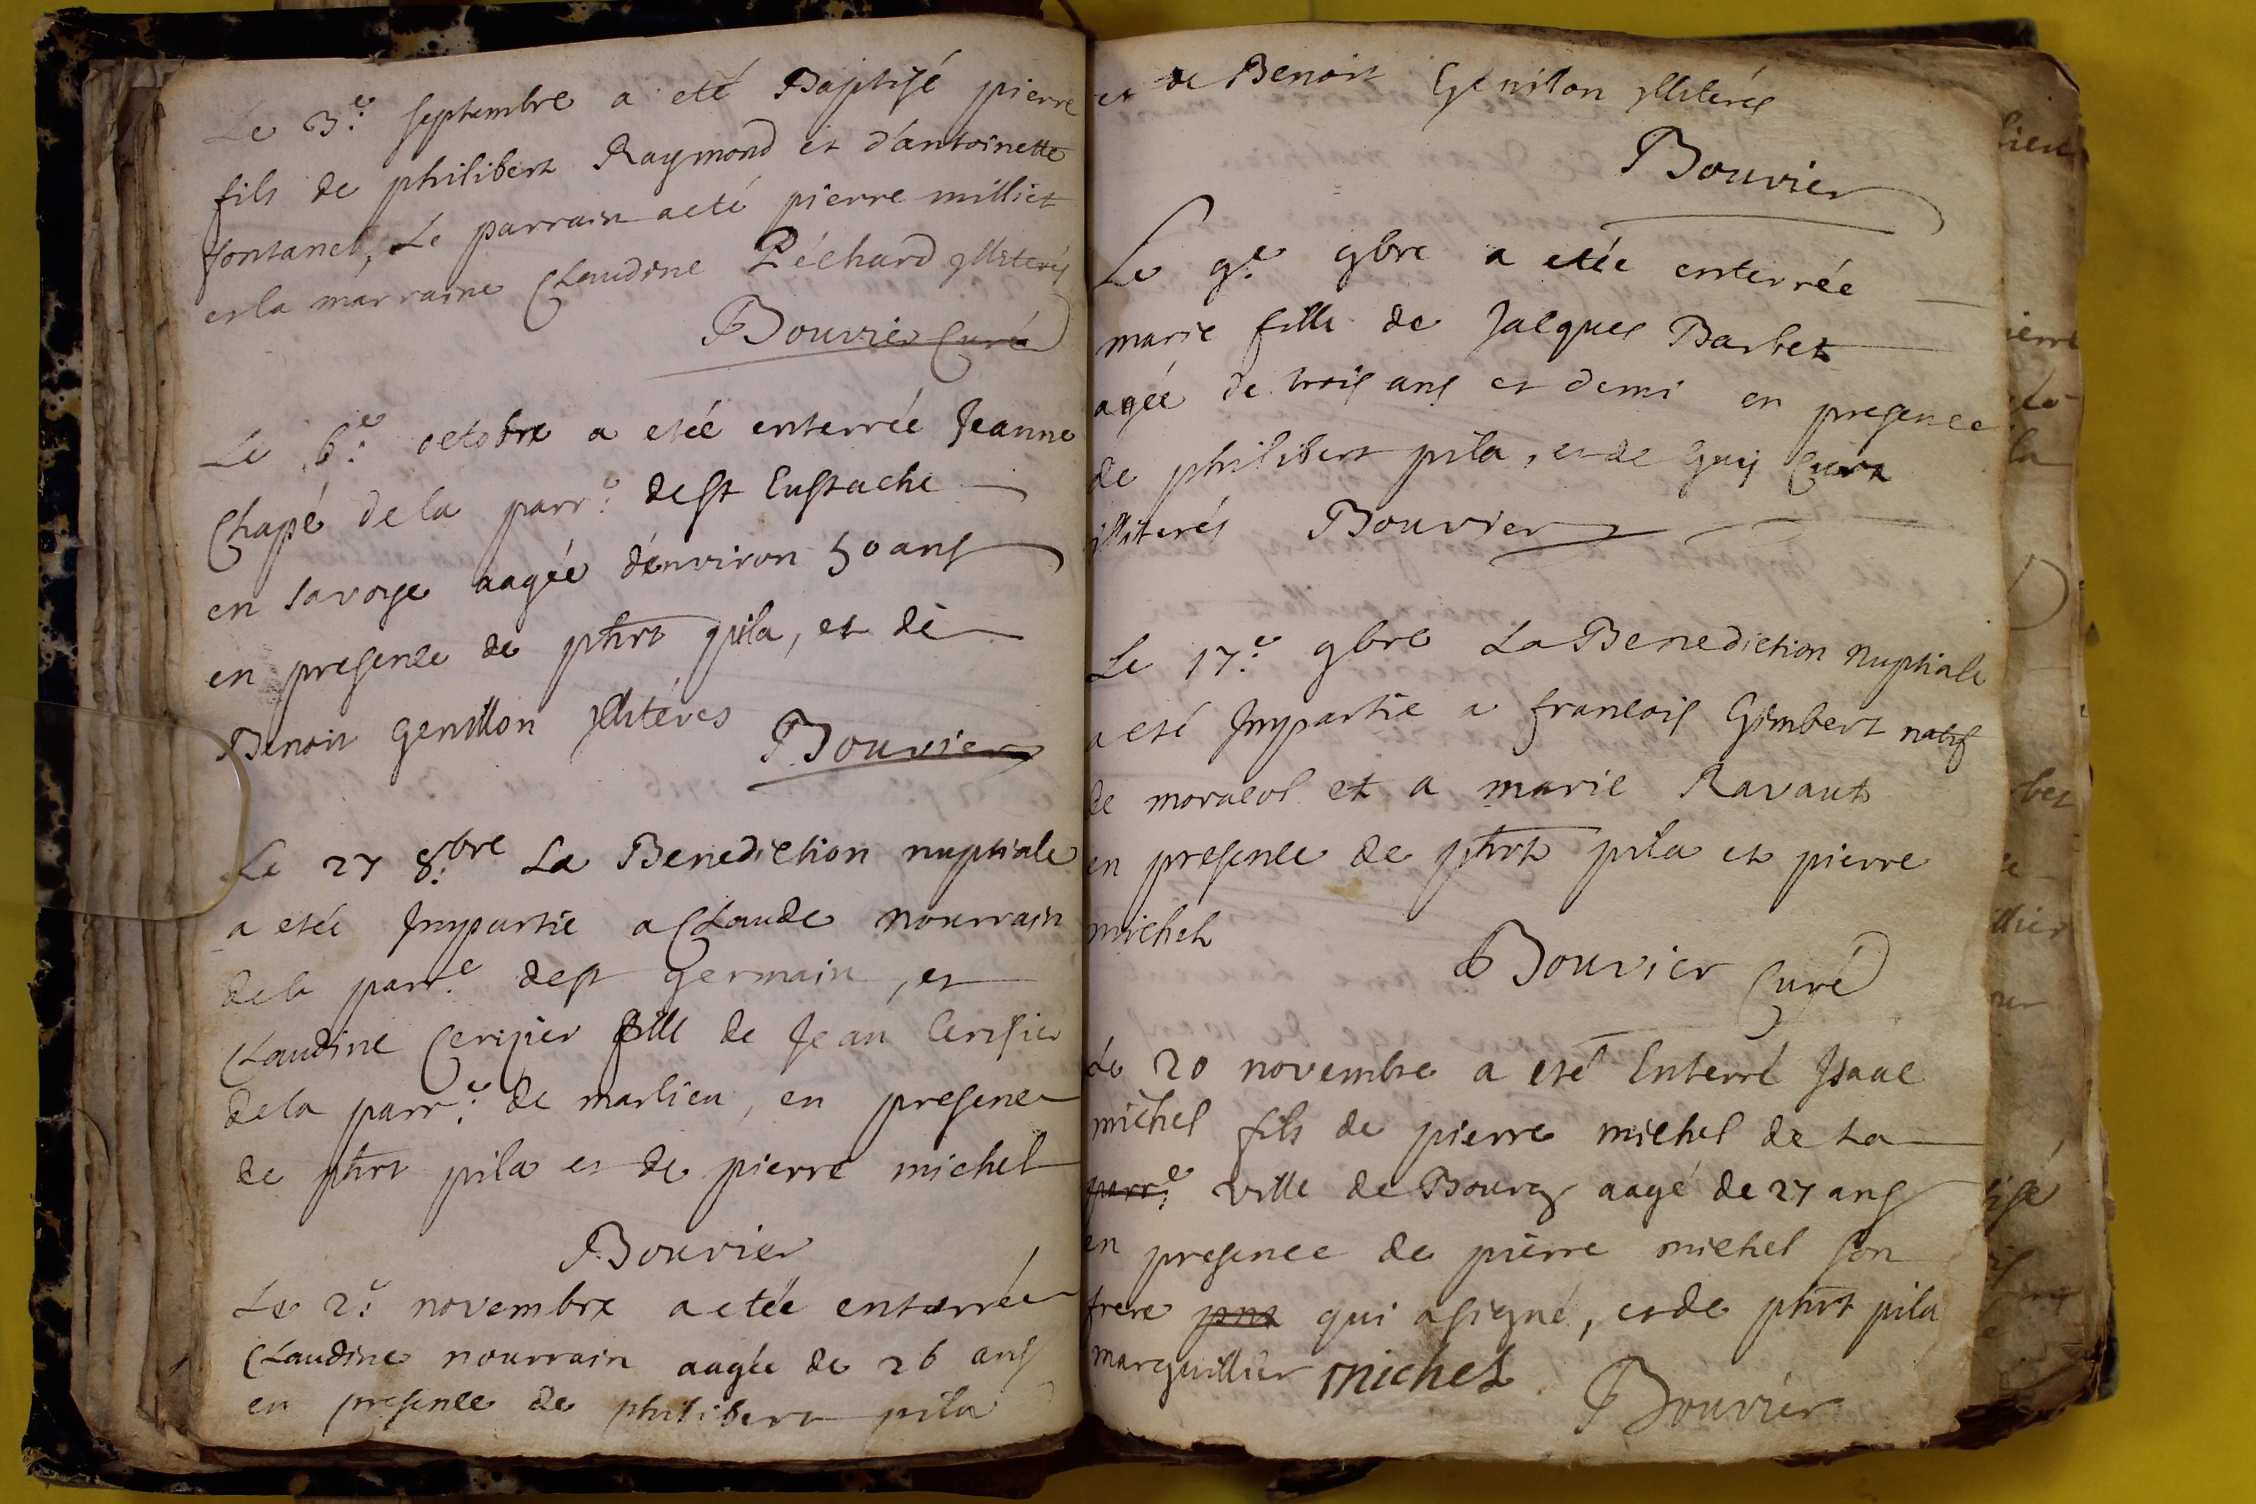 Le 3.e septembre a eté Baptisé pierre
fils de philibert Raymond et d'antoinette
fontanel, Le parrain a eté pierre milliet
et la marraine Claudine Péchard illiterés
Bouvier Curé
Le 6.e octobre a etée enterrée Jeanne
Chapé de la parr.e de St Eustache
en savoye aagée d'environ 50 ans
en presence de phrt pila, et de
Benoit genillon illitérés
Bouvier
Le 27 8.bre La Benediction nuptiale
a etée Impartie a Claude nourrain
de la parr.e de st germain, et
Claudine Cerisier fille de Jean Cerisier
de la parr.e de marlieu, en presence
de phrt pila et de pierre michel
Bouvier
Le 2.e novembre a etée enterrée
Claudine nourrain aagée de 26 ans
en presence de philibert pila
et de Benoit Genillon illiterés
Bouvier
Le 9.e 9bre a etée enterrée
marie fille de Jacques Barbet
agée de trois ans et demi en presence
de philibert pila, et de Guy
illiterés Bouvier
Le 17.e 9bre La Benediction Nuptiale
a eté Impartie a francois Gimbert natif
de et a marie Ravaut
en presence de phrt pila et pierre
michel
Bouvier Curé
Le 20 novembre a eté Enterré Isaac
michel fils de pierre michel de La
parr.e ville de Bourg aagé de 27 ans
en presence de pierre michel son
frere pnt qui a signé, et de phrt pila
marguillier michel
Bouvier